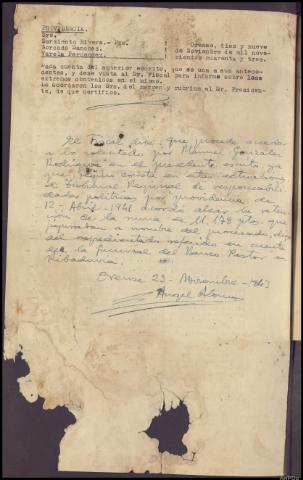 PROVIDENCIA.
Sres.
Sarmiento Rivera.- Pte.
Dorrondo Sanchez.
Varela Fernandez.
Orense, diez y nueve
de Noviembre de mil nove-
cientos cuarenta y tres.
Dada cuenta del anterior escrito, que se una a sus antece-
dentes, y dese vista al Sr. Fiscal para informe sobre los
extremos contenidos en el mismo.
Lo acordaron los Sres. del margen y rubrica el Sr. Presiden-
te, de que certifico.
El Fiscal dice, que procede acceder
a lo solicitado por Manuel Gonzalez
Rodriguez en el precedente escrito, ya
que según consta en estas actuaciones
el Tribunal Regional de responsabili-
dades políticas por providencia de
12 - Abril - 1941 acordó alzar la reten-
ción de la suma de 11.178 ptas. que
figuraban a nombre del
del expedientado referido en cuenta
en la sucursal del Banco Pastor en
Ribadavia.
Orense 23 - Noviembre - 1943
Angel Alonso